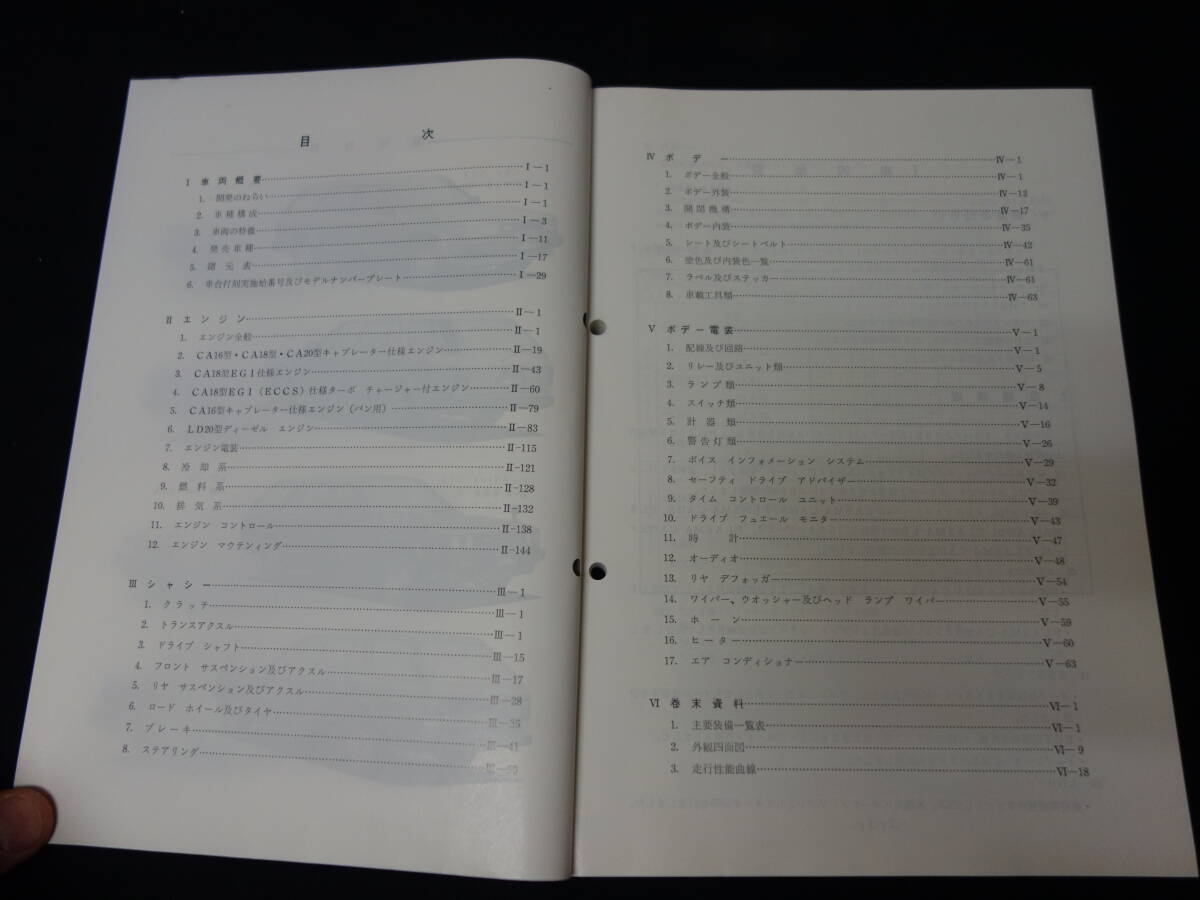 目　次
Ⅰ 車両概要……Ⅰ—1
1. 開発のねらい……Ⅰ—1
2. 車種構成……Ⅰ—1
3. 車両の特徴……Ⅰ—3
4. 発売車種……Ⅰ—11
5. 諸元表……Ⅰ—17
6. 車台打刻実施始番号及びモデルナンバープレート……Ⅰ—29
Ⅱ エンジン……Ⅱ—1
1. エンジン全般……Ⅱ—1
2. CA16型・CA18型・CA20型キャブレーター仕様エンジン……Ⅱ—19
3. CA18型EGI仕様エンジン……Ⅱ—43
4. CA18型EGI（ECCS）仕様ターボ チャージャー付エンジン……Ⅱ—60
5. CA16型キャブレーター仕様エンジン（バン用）……Ⅱ—79
6. LD20型ディーゼル エンジン……Ⅱ—83
7. エンジン電装……Ⅱ-115
8. 冷却系……Ⅱ-121
9. 燃料系……Ⅱ-128
10. 排気系……Ⅱ-132
11. エンジン コントロール……Ⅱ-138
12. エンジン マウンティング……Ⅱ-144
Ⅲ シャシー……Ⅲ—1
1. クラッチ……Ⅲ—1
2. トランスアクスル……Ⅲ—1
3. ドライブ シャフト……Ⅲ—15
4. フロント サスペンション及びアクスル……Ⅲ—17
5. リヤ サスペンション及びアクスル……Ⅲ—28
6. ロード ホイール及びタイヤ……Ⅲ—35
7. ブレーキ……Ⅲ—41
8. ステアリング……Ⅲ—50
Ⅳ ボデー……Ⅳ—1
1. ボデー全般……Ⅳ—1
2. ボデー外装……Ⅳ—12
3. 開閉機構……Ⅳ—17
4. ボデー内装……Ⅳ—35
5. シート及びシートベルト……Ⅳ—42
6. 塗色及び内装色一覧……Ⅳ—61
7. ラベル及びステッカ……Ⅳ—61
8. 車載工具類……Ⅳ—63
Ⅴ ボデー電装……Ⅴ—1
1. 配線及び回路……Ⅴ—1
2. リレー及びユニット類……Ⅴ—5
3. ランプ類……Ⅴ—8
4. スイッチ類……Ⅴ—14
5. 計器類……Ⅴ—16
6. 警告灯類……Ⅴ—26
7. ボイス インフォメーション システム……Ⅴ—29
8. セーフティ ドライブ アドバイザ……Ⅴ—32
9. タイム コントロール ユニット……Ⅴ—39
10. ドライブ フュエール モニタ……Ⅴ—43
11. 時計……Ⅴ—47
12. オーディオ……Ⅴ—48
13. リヤ デフォッガー……Ⅴ—54
14. ワイパー、ウオッシャー及びヘッド ランプ ワイパー……Ⅴ—55
15. ホーン……Ⅴ—59
16. ヒーター……Ⅴ—60
17. エア コンディショナ……Ⅴ—63
Ⅵ 巻末資料……Ⅵ—1
1. 主要装備一覧表……Ⅵ—1
2. 外観四面図……Ⅵ—9
3. 走行性能曲線……Ⅵ—18